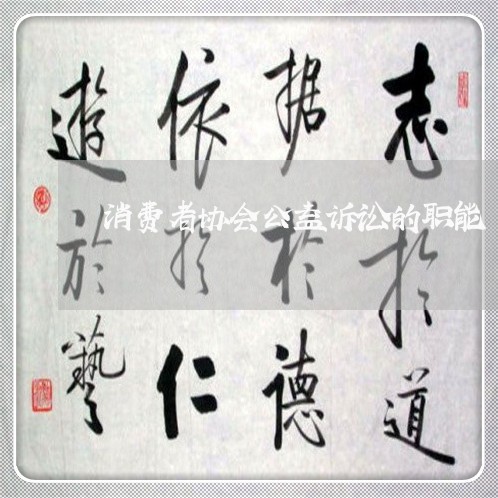 志於道
据於德
依於仁
遊於藝
消费者协会公益诉讼的职能